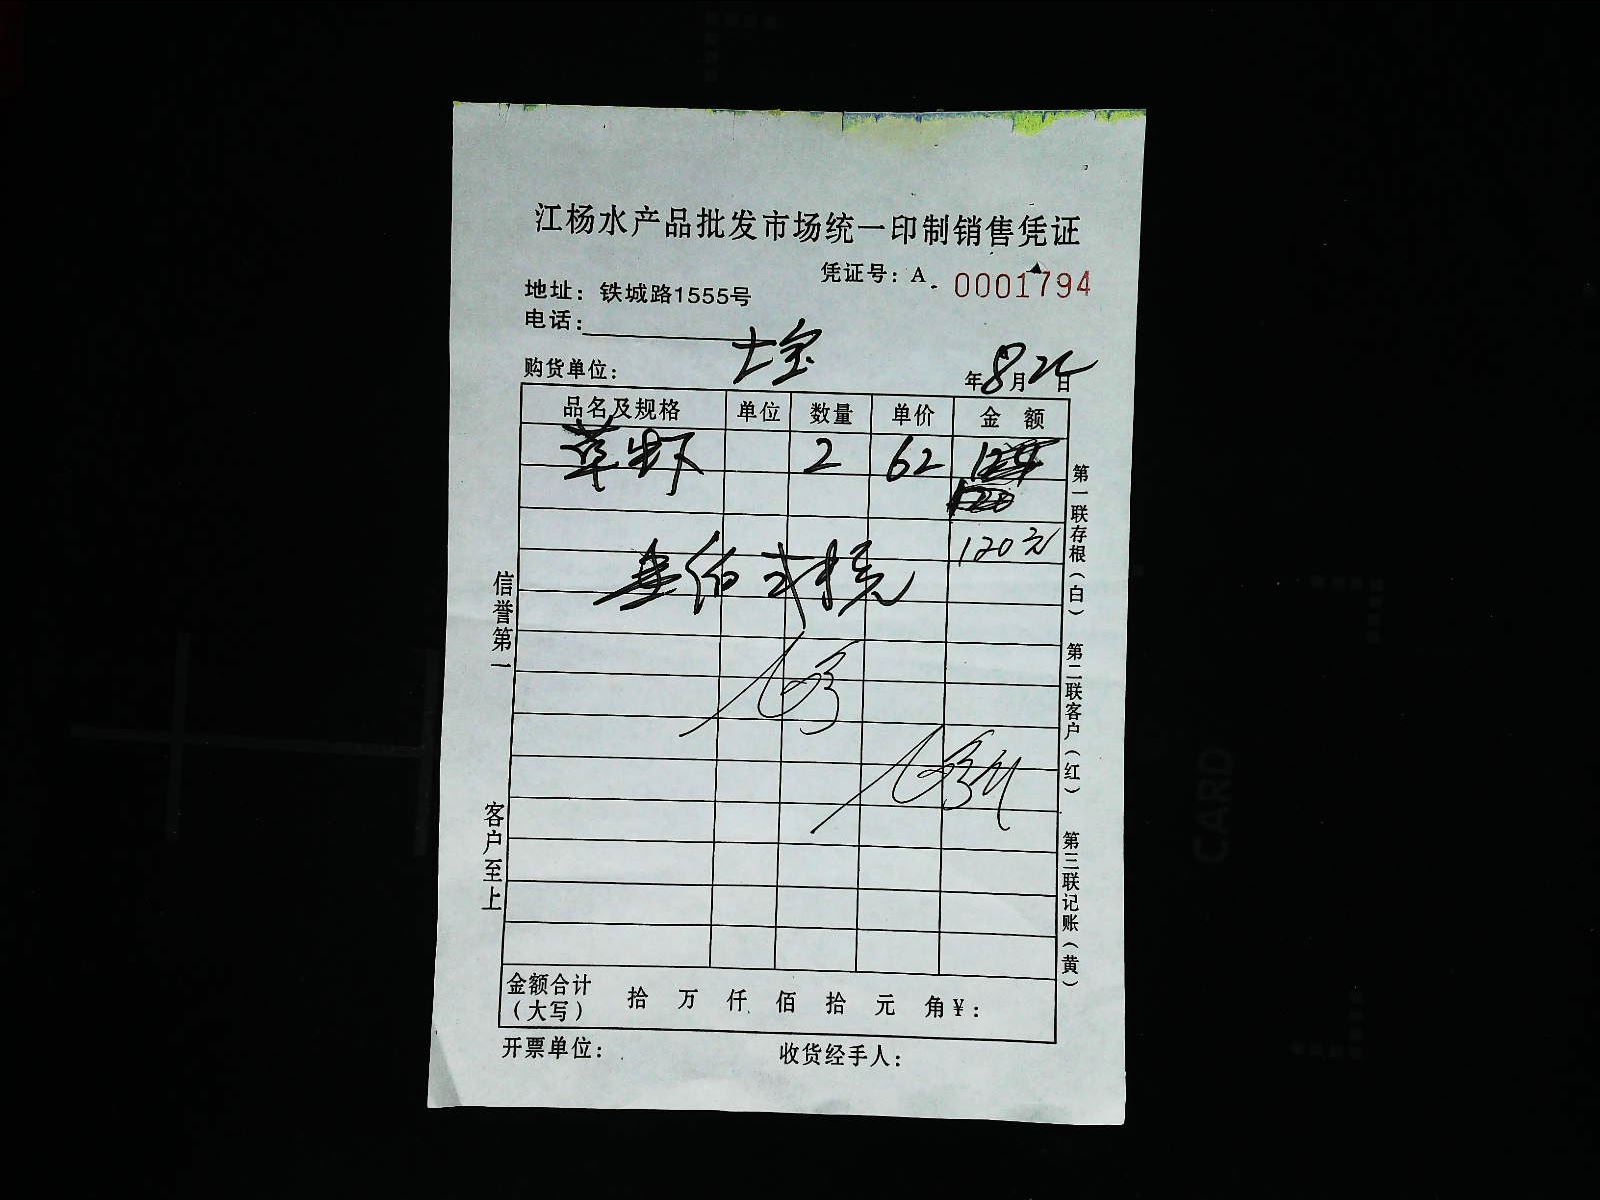 江杨水产品批发市场统一印制销售凭证
凭证号：A. 0001794
地址：铁城路1555号
电话：
购货单位：七宝
年8月26日
品名及规格 单位 数量 单价 金额
草虾 2 62
120元
壹佰弍拾元
金额合计（大写） 拾 万 仟 佰 拾 元 角 ¥：
开票单位：
收货经手人：
信誉第一
客户至上
第一联存根（白）
第二联客户（红）
第三联记账（黄）
CARD